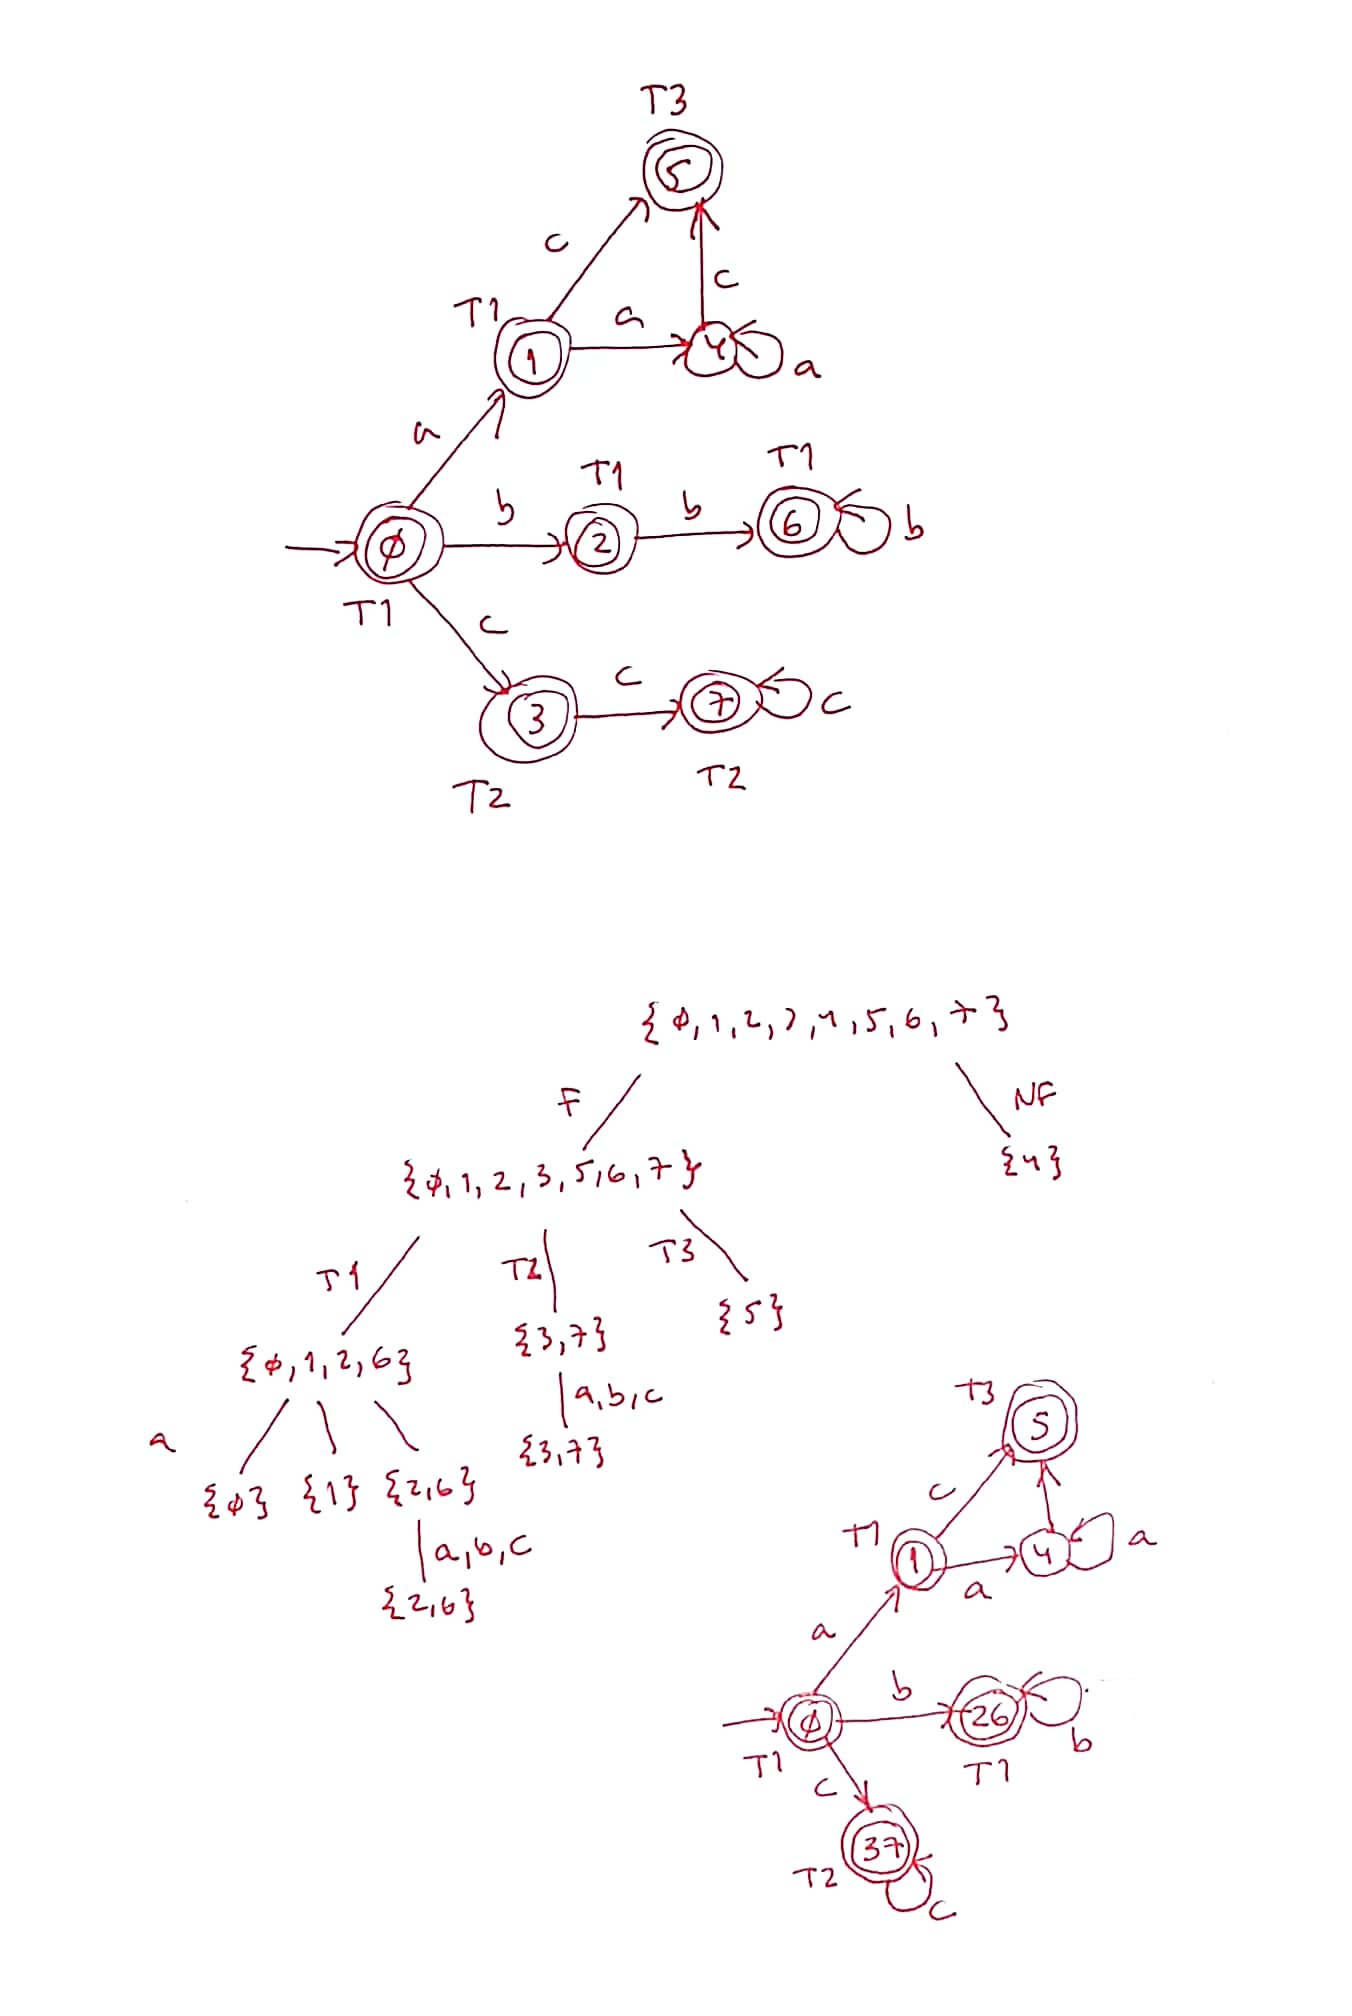 T3
5
c
c
T1
a
1
4
a
a
T1
T1
b
b
2
6
b
φ
T1
c
c
3
7
c
T2
T2
{φ,1,2,3,4,5,6,7}
F
NF
{φ,1,2,3,5,6,7}
{4}
T1
T2
T3
{φ,1,2,6}
{3,7}
{5}
a
a,b,c
{φ} {1} {2,6}
{3,7}
a,b,c
{2,6}
T3
5
c
T1
1
4
a
a
a
b
φ
26
b
T1
T1
c
37
T2
c